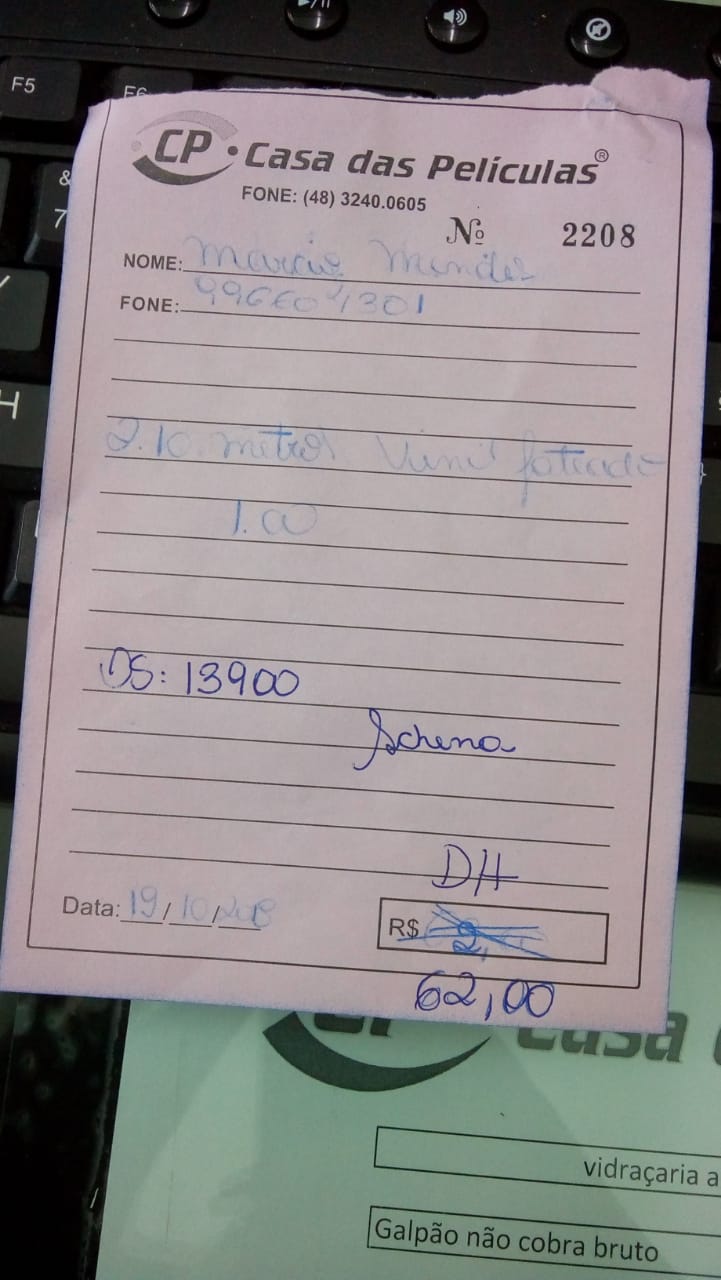 F5
F6
&
7
H
CP • Casa das Películas®
FONE: (48) 3240.0605
Nº 2208
NOME: Marcio Mendes
FONE:
2.10 metros Vinil fateado
1.00
OS: 13900
Schena
DH
Data: 19/10/2018
R$
62,00
CP Casa
vidraçaria a
Galpão não cobra bruto